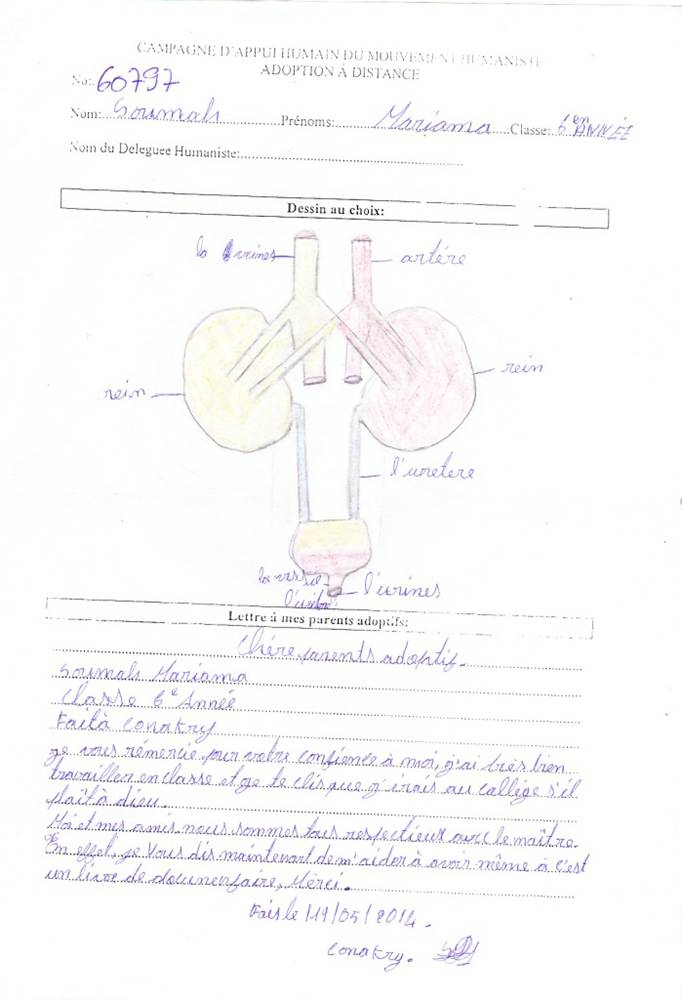 CAMPAGNE D'APPUI HUMAIN DU MOUVEMENT HUMANISTE
ADOPTION À DISTANCE
No: 60797
Nom: Soumah Prénoms: Mariama Classe: 6en ANNÉE
Nom du Deleguee Humaniste:
Dessin au choix:
artére
rein
rein
l'uretere
l'urines
Lettre à mes parents adoptifs:
Chére parents adoptif.
Soumah Mariama
Classe 6e Année
Fait à Conakry
ge vous rémercie pour votre confience à moi, g'ai très bien
travailler en classe et ge te dis que g'irais au collége s'il
plaît à dieu.
Moi et mes amis nous sommes tous respectieux avec le maître.
En effet, ge Vous dis maintenant de m'aider à avoir même à c'est
un livre de documentaire, Merci.
Fais le 14/05/2014.
Conakry.